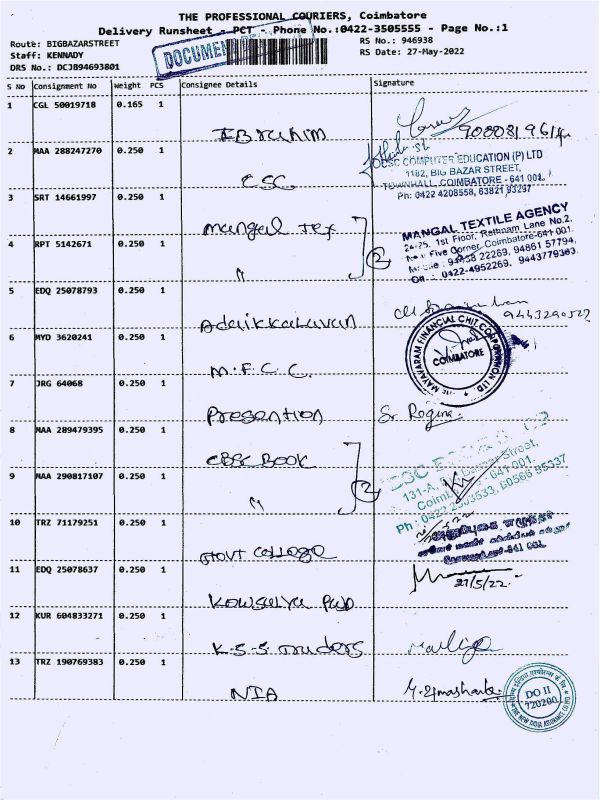 THE PROFESSIONAL COURIERS, Coimbatore
Delivery Runsheet - PCT - Phone No.:0422-3505555 - Page No.:1
Route: BIGBAZARSTREET
RS No.: 946938
Staff: KENNADY
RS Date: 27-May-2022
DRS No.: DCJB94693801
DOCUMENT
S No Consignment No Weight PCS Consignee Details Signature
1 CGL 50019718 0.165 1 Ibrahim
2 MAA 288247270 0.250 1 CSC
CSC COMPUTER EDUCATION (P) LTD
1182, BIG BAZAR STREET,
TOWNHALL, COIMBATORE - 641 001.
Ph: 0422 4208558, 63821 93297
3 SRT 14661997 0.250 1 Mangal Tex
4 RPT 5142671 0.250 1 "
2
MANGAL TEXTILE AGENCY
24-25, 1st Floor, Rathnam Lane No.2,
Five Corner, Coimbatore-641 001.
22269, 94861 57794,
Off : 0422-4952269, 9443779383
5 EDQ 25078793 0.250 1 Adaikkalavan
6 MYD 3620241 0.250 1 M.F.C.C.
THE MAYAVARAM FINANCIAL CHIT CORPORATION LTD
COIMBATORE
7 JRG 64068 0.250 1 Presention Sr Regina
8 MAA 289479395 0.250 1 CBSC BOOK
9 MAA 290817107 0.250 1 "
2
131-A, Bazaar Street,
641 001
10 TRZ 71179251 0.250 1 Govt College
11 EDQ 25078637 0.250 1 Kowsalya
27/5/22
12 KUR 604833271 0.250 1 K.S.S. Traders
13 TRZ 190769383 0.250 1 NIA
DO II
720200
THE NEW INDIA ASSURANCE CO LTD